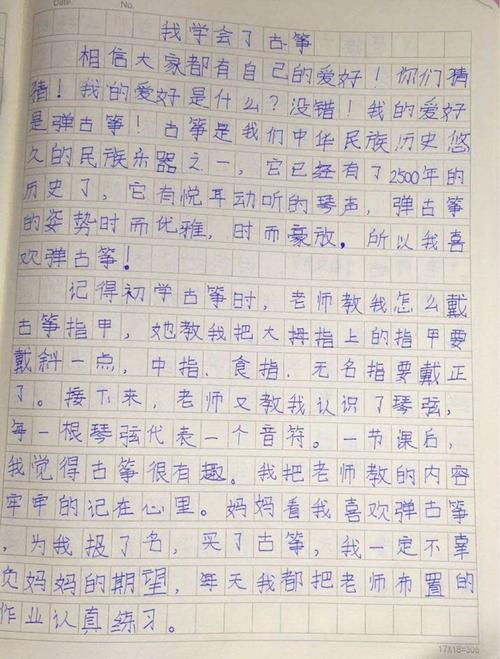 Date. No.
我学会了古筝
相信大家都有自己的爱好！你们猜
猜！我的爱好是什么？没错！我的爱好
是弹古筝！古筝是我们中华民族历史悠
久的民族乐器之一，它已经有了2500年的
历史了，它有悦耳动听的琴声，弹古筝
的姿势时而优雅，时而豪放。所以我喜
欢弹古筝！
记得初学古筝时，老师教我怎么戴
古筝指甲，她教我把大拇指上的指甲要
戴斜一点，中指、食指、无名指要戴正
了。接下来，老师又教我认识了琴弦，
每一根琴弦代表一个音符。一节课后，
我觉得古筝很有趣。我把老师教的内容
牢牢的记在心里。妈妈看我喜欢弹古筝
，为我报了名，买了古筝，我一定不辜
负妈妈的期望，每天我都把老师布置的
作业认真练习。
17X18=306